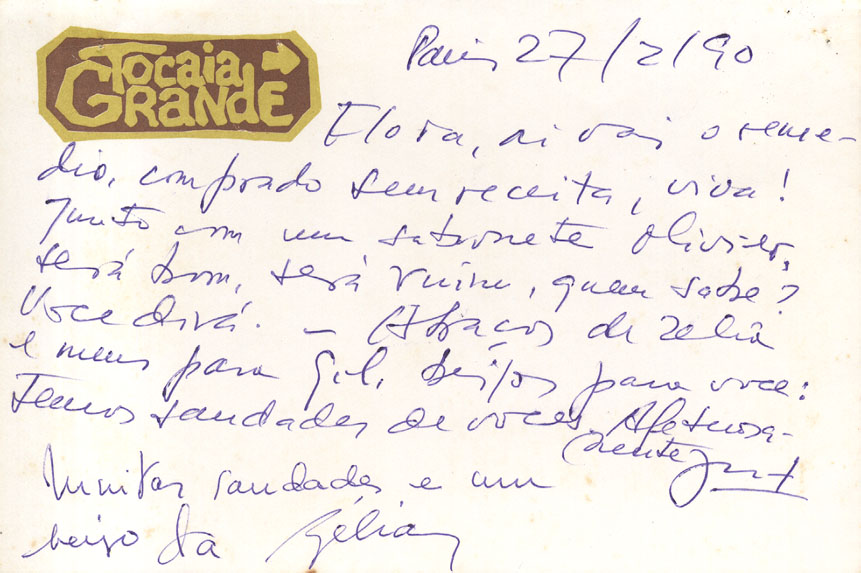 TOCAIA
GRANDE
Paris 27/2/90
Flora, ai vai o reme-
dio, comprado sem receita, viva!
Junto com um sabonete Olivier,
será bom, será ruim, quem sabe?
Você dirá. — Abraços de Zelia
e meus para Gil, beijos para voce:
Temos saudades de voces. Afetuosa-
mente
Muitas saudades e um
beijo da Zélia